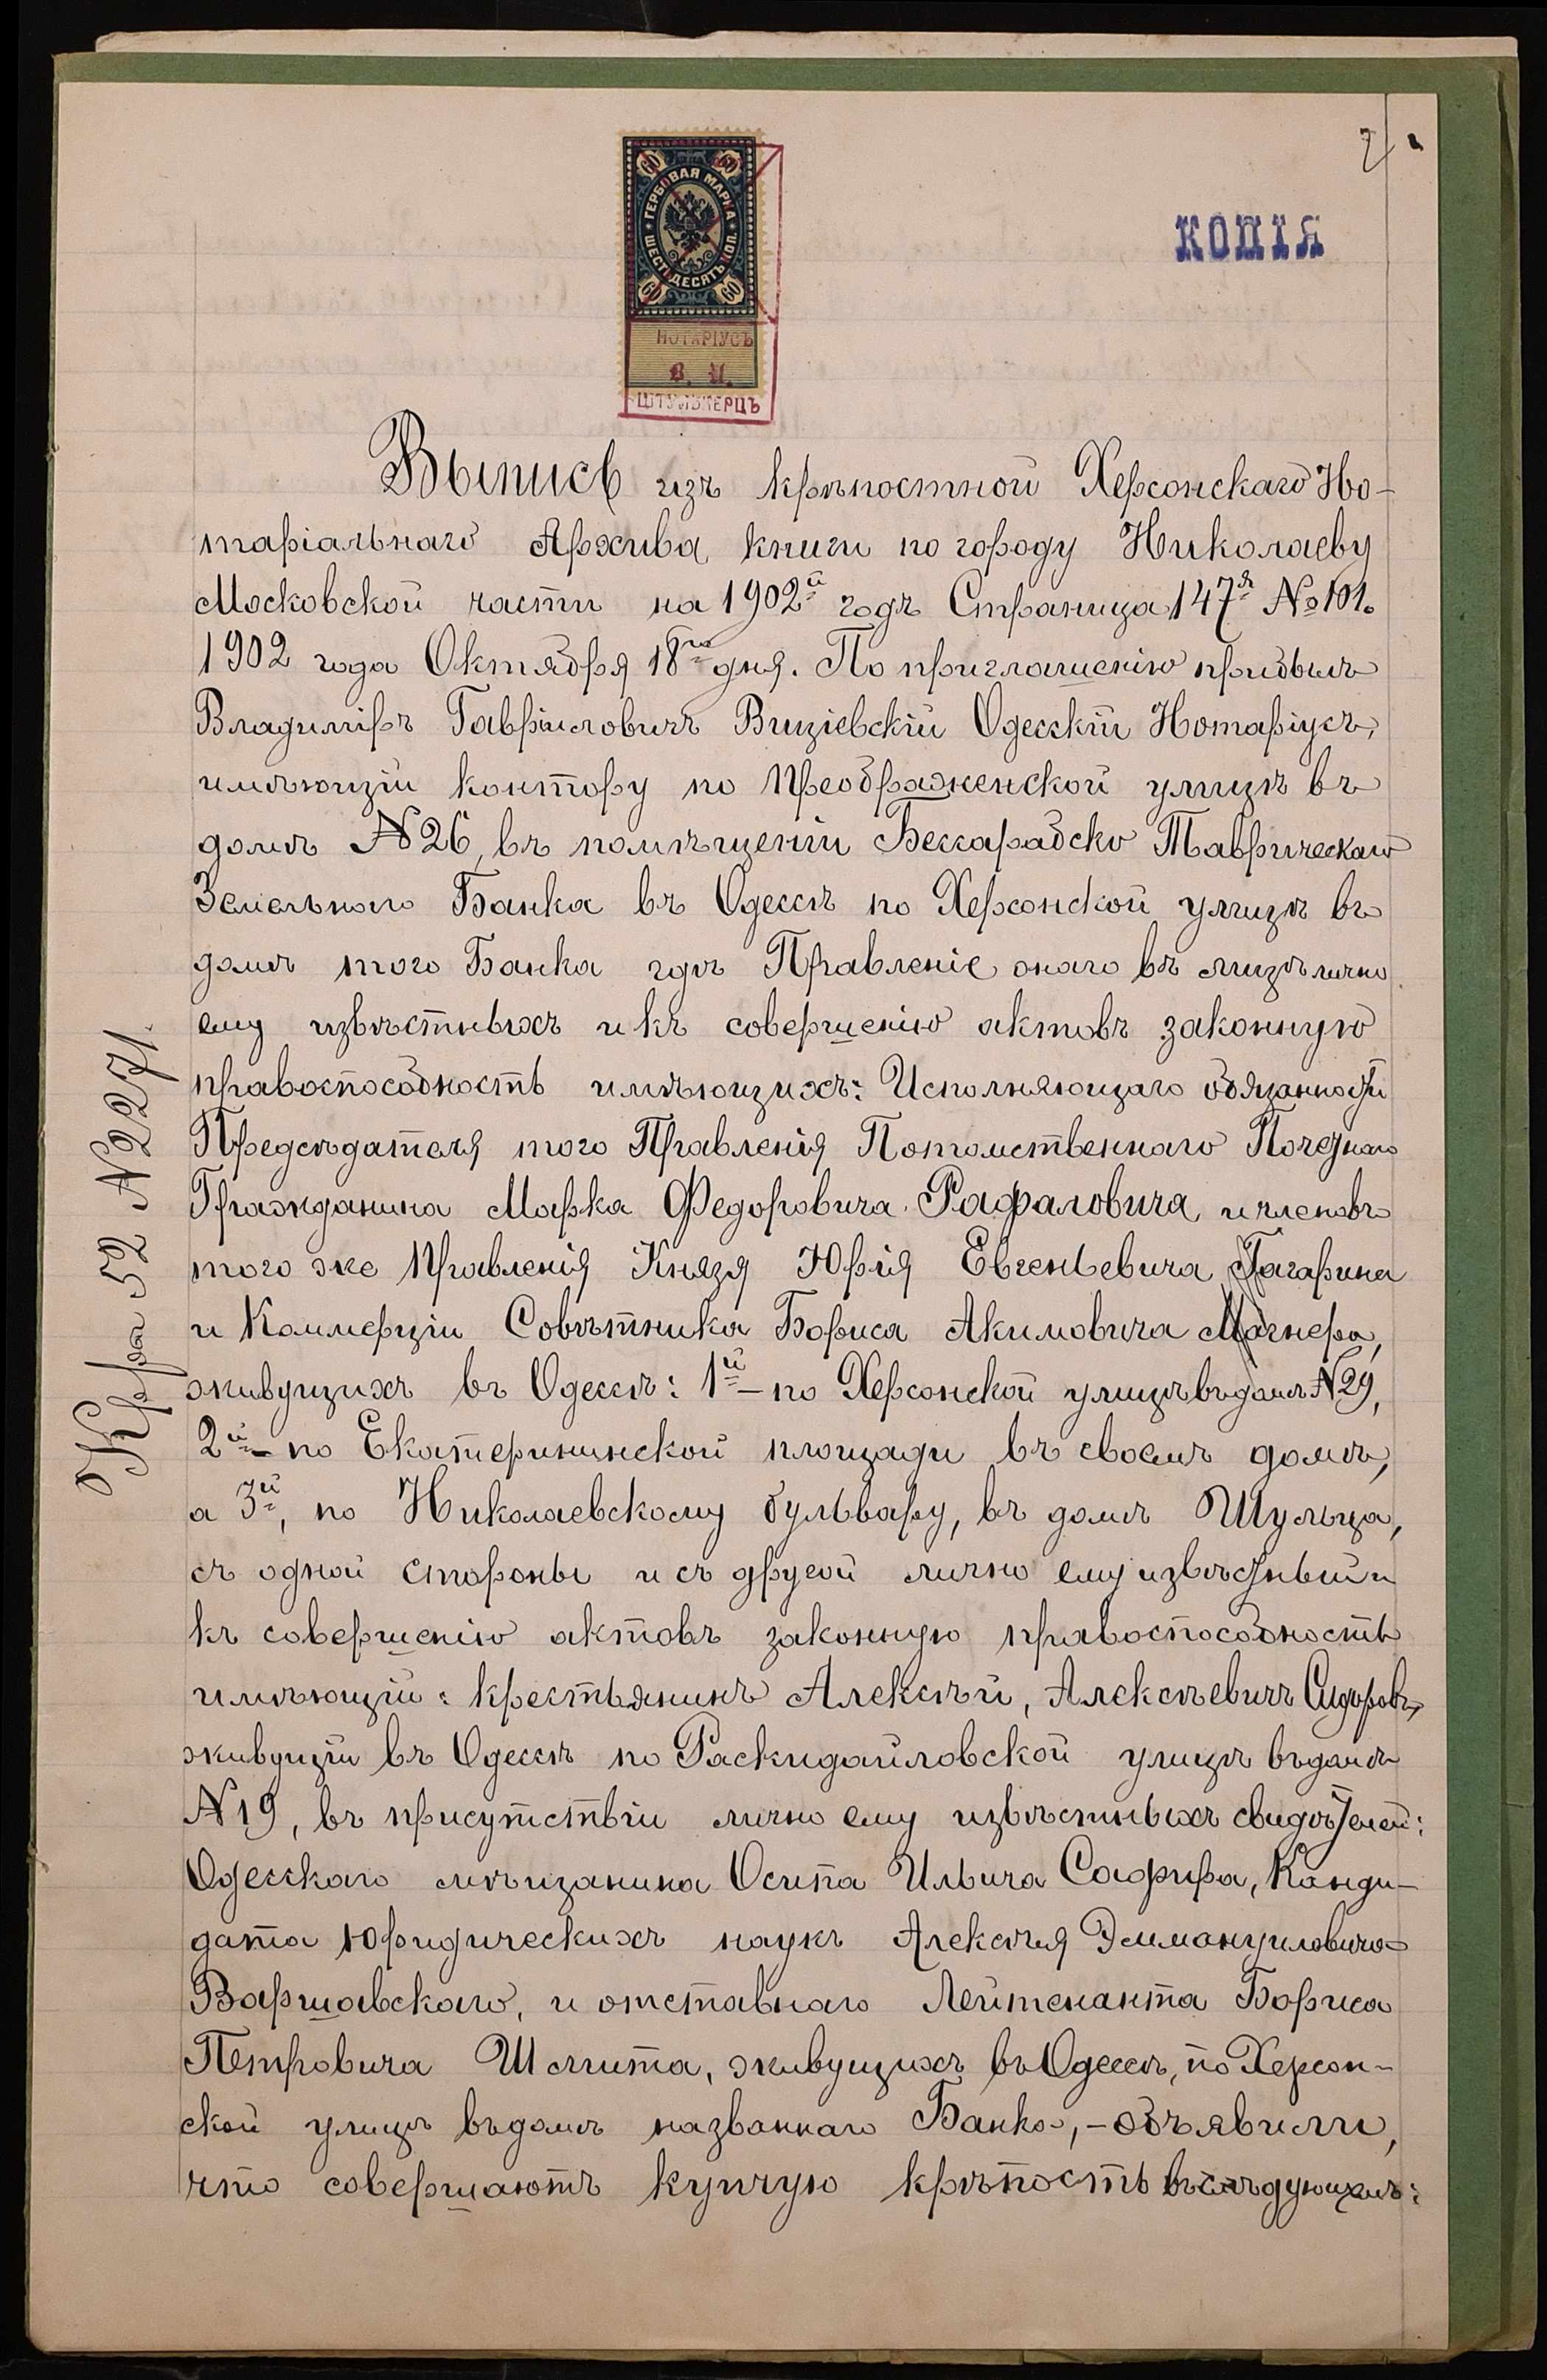 2
КОПІЯ
60 60
ГЕРБОВАЯ МАРКА
ШЕСТЬДЕСЯТЪ КОП.
60 60
НОТАРІУСЪ
В. И.
ШТУМЬКЕРЦЪ
Выпись изъ крѣпостной Херсонскаго Но-
таріальнаго Архива книги по городу Николаеву
Московской части на 1902й годъ Страница 147я № 101.
1902 года Октября 18го дня. По приглашенію прибылъ
Владиміръ Гавріиловичъ Визіевскій Одесскій Нотаріусъ,
имѣющій контору по Преображенской улицѣ въ
домѣ № 26, въ помѣщеніи Бессарабско Таврическаго
Земельнаго Банка въ Одессѣ по Херсонской улицѣ въ
домѣ того Банка гдѣ Правленіе онаго въ лицѣ лично
ему извѣстныхъ и къ совершенію актовъ законную
правоспособность имѣющихъ: Исполняющаго обязанности
Предсѣдателя того Правленія Потомственнаго Почетнаго
Гражданина Марка Федоровича Рафаловича, и членовъ
того же Правленія Князя Юрія Евгеньевича Гагарина
и Коммерціи Совѣтника Бориса Акимовича Магнера,
живущихъ въ Одессѣ: 1й – по Херсонской улицѣ въ домѣ № 29,
2й – по Екатерининской площади въ своемъ домѣ,
а 3й, по Николаевскому бульвару, въ домѣ Шульца,
съ одной стороны и съ другой лично ему извѣстный и
къ совершенію актовъ законную правоспособность
имѣющій: крестьянинъ Алексѣй, Алексѣевичъ Сидоровъ,
живущій въ Одессѣ по Раскидайловской улицѣ въ домѣ
№ 19, въ присутствіи лично ему извѣстныхъ свидѣтелей:
Одесскаго мѣщанина Осипа Ильича Сафира, Канди-
дата Юридическихъ наукъ Алексѣя Эммануиловича
Варшавскаго, и отставнаго Лейтенанта Бориса
Петровича Шмита, живущихъ въ Одессѣ, по Херсон-
ской улицѣ въ домѣ названнаго Банка, – объявили,
что совершаютъ купчую крѣпость въ слѣдующемъ:
52 № 2271.